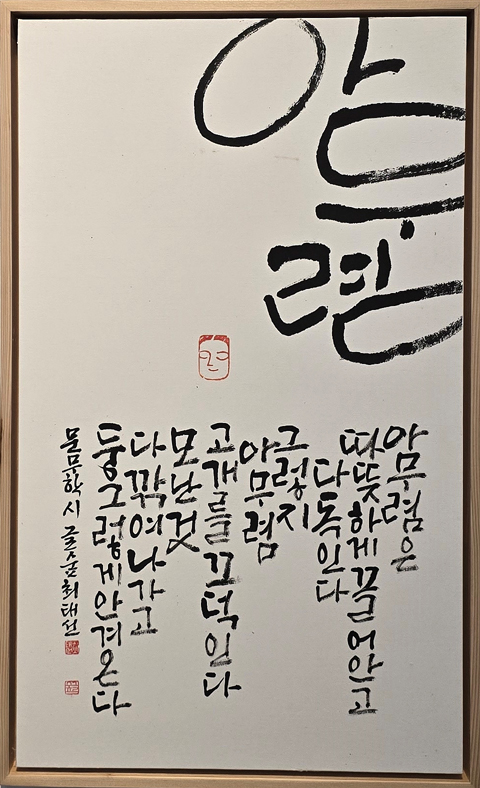 아무렴
아무렴은
따뜻하게 끌어안고
다독인다
그렇지
아무렴
고개를 끄덕인다
모난 것
다 깎여나가고
둥그렇게 안겨온다
문무학 시 최태선